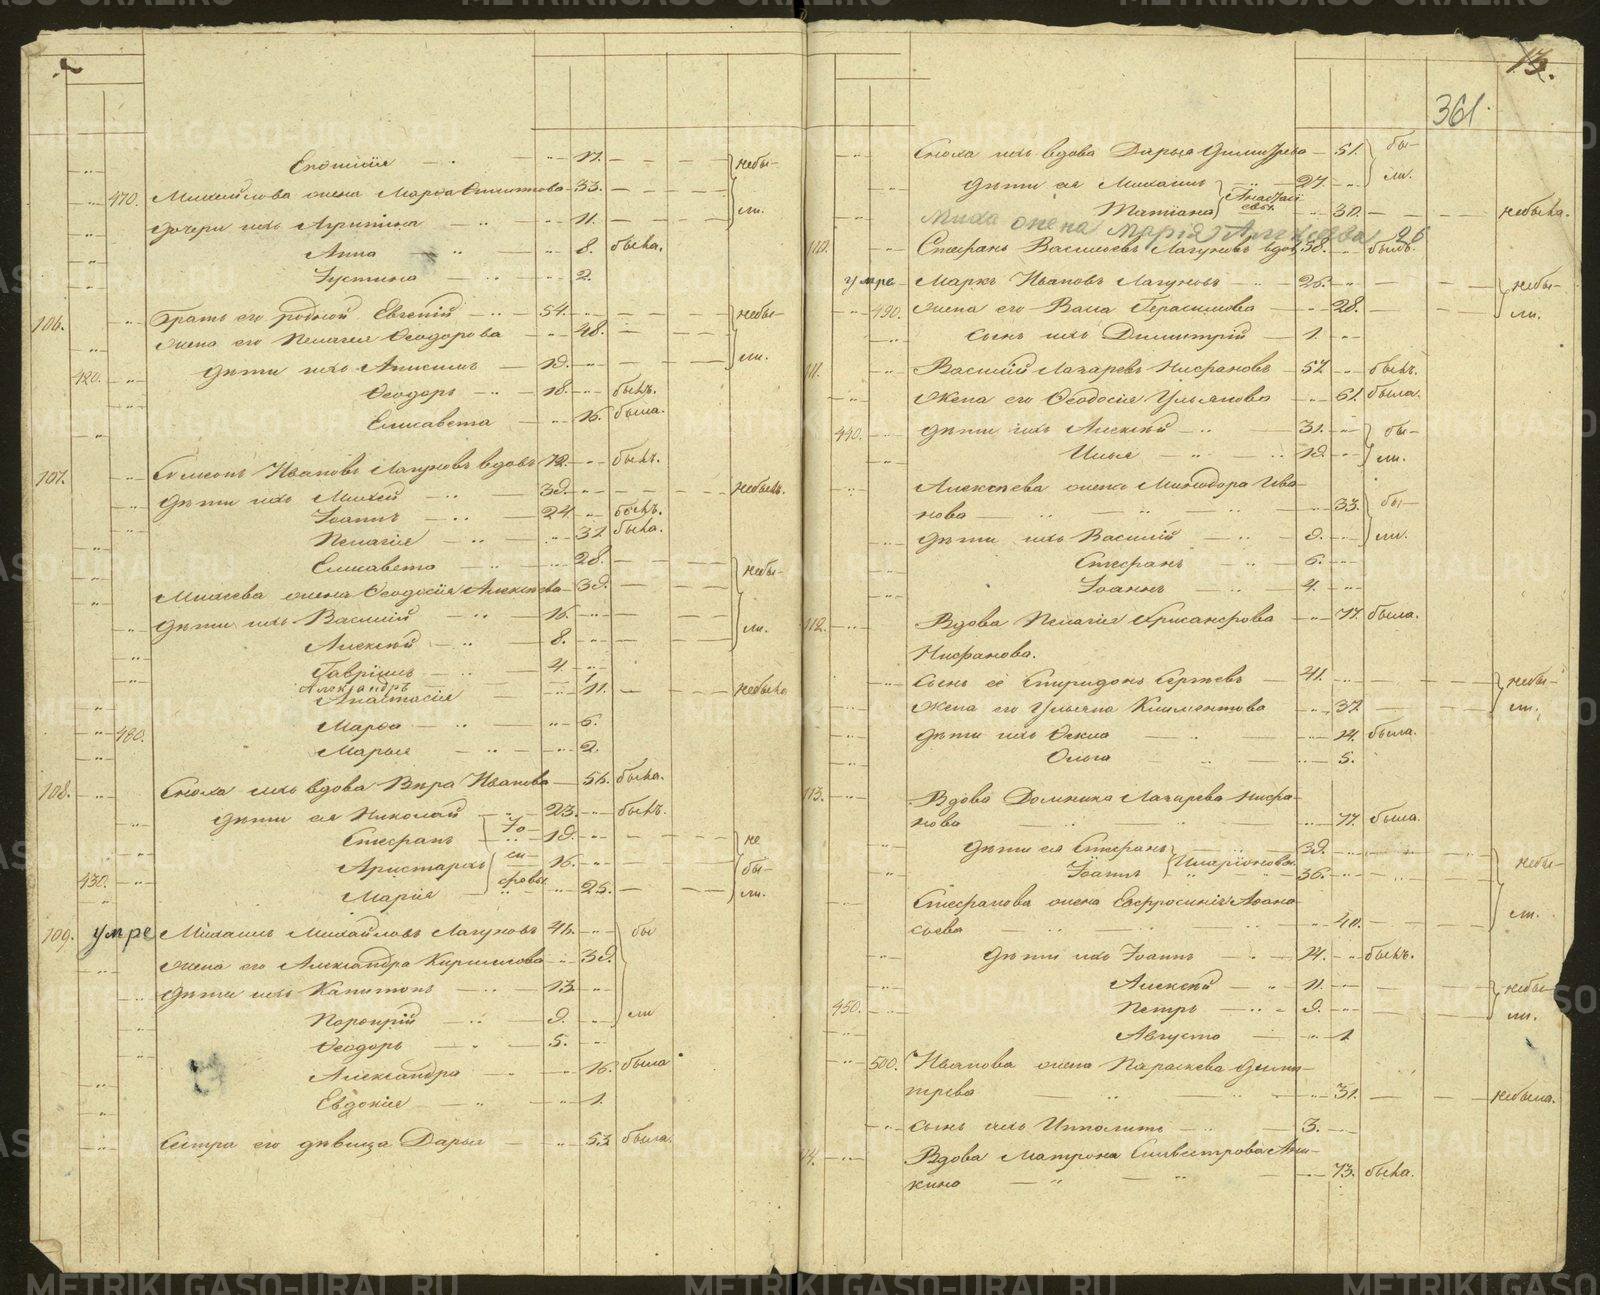 13.
361.
17. небы-
470. Михайлова жена Марѳа 33. ли.
дочери ихъ Агрипина 11.
Анна 8. была.
Іустина 2.
106. Братъ его родной Евгеній 54. небы-
жена его Пелагія Ѳеодорова 48. ли.
420. дѣти ихъ Анисимъ 19.
Ѳеодоръ 18. былъ.
Елисавета 16. была.
107. Симеонъ Ивановъ Лагуновъ вдовъ 72. былъ.
дѣти ихъ Михей 39. небылъ.
Іоаннъ 24. былъ.
Пелагія 32. была.
Елисавета 28. небы-
Михеева жена Ѳеодосія Алексѣева 39.
дѣти ихъ Василій 16. ли.
Алексѣй 8.
Гавріилъ 4.
Александръ 1.
Анастасія 11. небыла
480. Марѳа 6.
Марія 2.
108. Сноха ихъ вдова Вѣра Иванова 56. была.
дѣти ея Николай 23. былъ.
Стефанъ Іо- 19. не
Аристархъ си- 16. бы-
430. Марія фовы 25. ли.
109. умре Михаилъ Михайловъ Лагуновъ 46. бы
жена его Александра Кирилова 39.
дѣти ихъ Капитонъ 13.
Порфирій 9. ли
Ѳеодоръ 5.
Александра 16. была
Евдокія 1.
Сестра его дѣвица Дарья 53. была.
Сноха ихъ вдова Дарья Димитріева 51. бы-
дѣти ея Михаилъ 27. ли.
Татіана 30. небыла.
Миха жена Марія Алексеева 26
110. Стефанъ Васильевъ Лагуновъ вдов. 58. былъ.
умре Маркъ Ивановъ Лагуновъ 26. небы-
490. жена его Васса Герасимова 28. ли.
сынъ ихъ Димитрій 1.
111. Василій Лазаревъ Нисфановъ 57. былъ.
Жена его Ѳеодосія Ульянова 61. была.
440. дѣти ихъ Алексѣй 31. бы-
Илья 19. ли.
Алексѣева жена Минодора Ива-
нова 33. бы-
дѣти ихъ Василій 9. ли.
Стефанъ 6.
Іоаннъ 4.
112. Вдова Пелагія Хрисанфова 77. была.
Нисфанова.
Сынъ ея Спиридонъ Сергѣевъ 41. небы-
Жена его Ульяна Климентова 37. ли.
дѣти ихъ Ѳекла 14. была.
Ольга 5.
113. Вдова Домника Лазарева Нисфа-
нова 77. была.
дѣти ея Стефанъ 39.
Іоаннъ Иларіоновы 36. небы-
Стефанова жена Евфросинія Аѳана-
сьева 40. ли.
дѣти ихъ Іоаннъ 14. былъ.
Алексѣй 11. небы-
450. Петръ 9. ли.
Августа 1
500. Иванова жена Параскева Дими-
тріева 31. небыла.
сынъ ихъ Ипполитъ 3.
114. Вдова Матрона Сильвестрова Ани-
кина 73. была.
METRIKI.GASO-URAL.RU